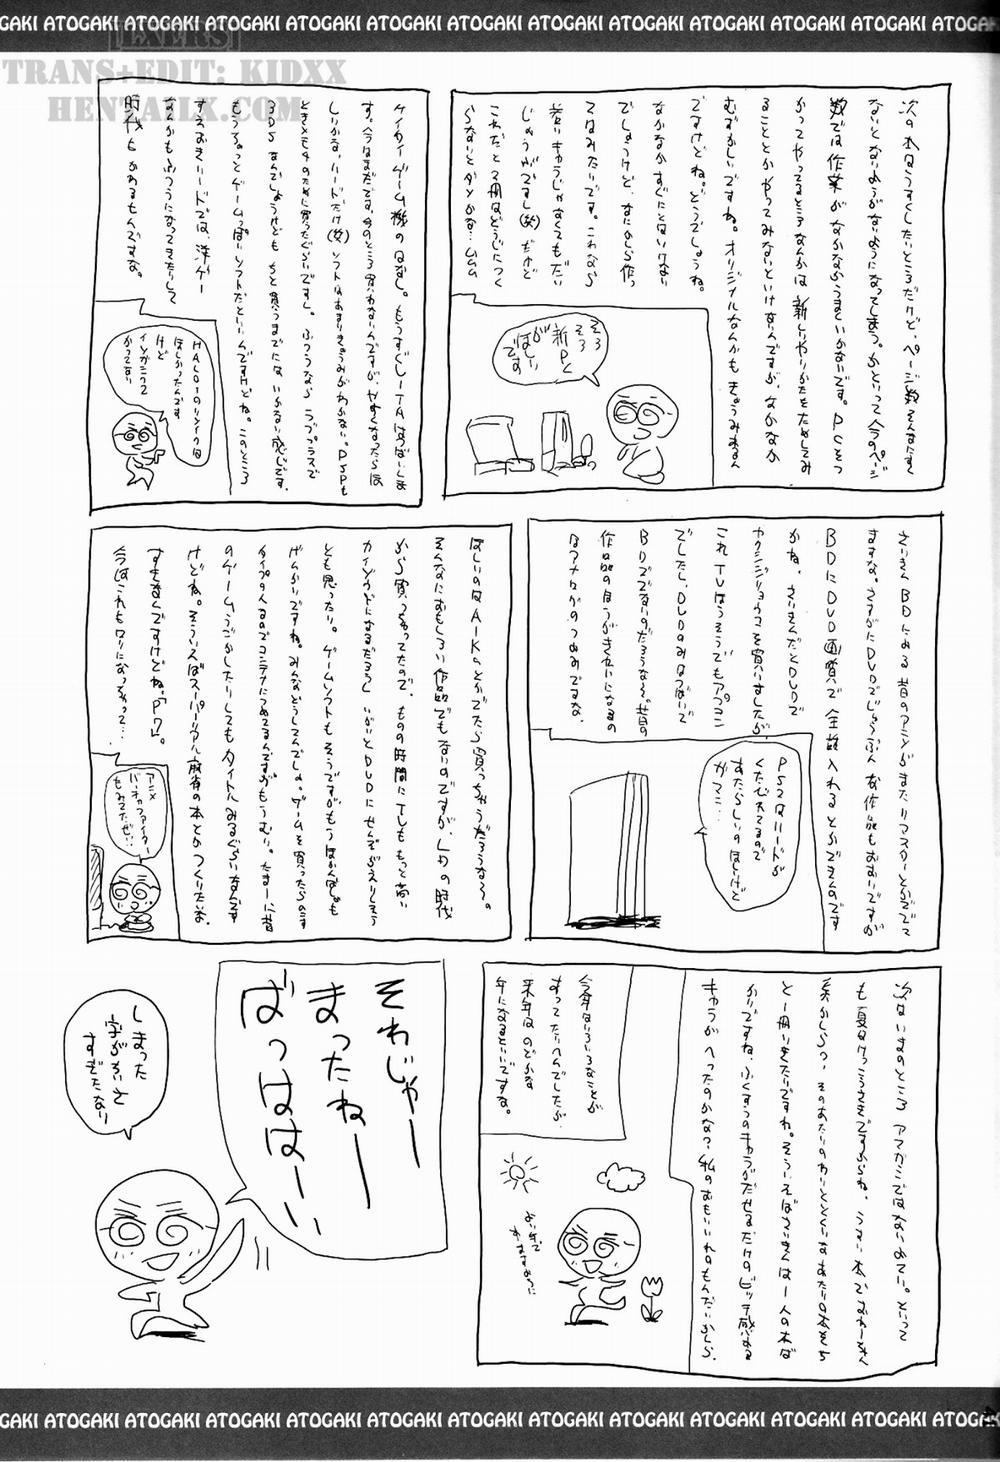 ATOGAKI ATOGAKI ATOGAKI ATOGAKI ATOGAKI ATOGAKI ATOGAKI ATOGAKI
[EXERS]
TRANS+EDIT: KIDXX
HENTAILX.COM
次の本はうすくしたいところだけど、ページ数そんなにすく
ないとないようがないようになってしまう。かといって今のページ
数では作業がなかなかうまくいかないです。PCをつ
かってやってるところなんかは新しいやりかたをためしてみ
ることとかやってみないといけないんですが、なかなか
むずかしいですね。オリジナルなんかもきょうみあるん
ですけどね。どうでしょうね。
なかなかすぐにとはいけない
でしょうけど、なにかしら作っ
てはみたいです。これなら
若いキャラじゃなくてもだい
じょうぶですし(笑)だけど
これだと2冊はどうじにつく
らないとダメかな…ムムム
そろ
そろ
新PC
が
ほしい
です
ケイタイゲーム機のはなし。もうすぐVITAはつばいしま
す。今はまだです。今のところ買わないんですが、やすくなったらほ
しいかな、ハードだけ(笑)ソフトはあまりきょうみがわかない。PSPも
ときメモ4のために買ったぐらいですし。ふつうならラブプラスで
3DSなんでしょうけどもちと買うまでにはいかない感じです。
もうちょっとゲームっぽいソフトだといいんですけどね。このところ
すえおきハードでは、洋ゲー
なんかもふつうになってきたりして
時代もかわるもんですな。
HALO1のリメイクは
ほしかったんです
けど
インがニガくて
かってない
さいきんBDにある昔のアニメがまたリマスターとかででて
ますな。さすがにDVDでじゅうぶんな作品もおおいですが
BDにDVD画質で全話入れるとかできんのです
かね。さいきんだとDVDで
カクシジョウコを買いましたが、
これTVはうそうでもアプコン
でしたし、DVDのみはつばいで
BDででないのだろうな〜。昔の
作品のほうがきれいになるの
はアナログのつよみですな。
PS2はハードが
くたびれてるので
あたらしいのほしけど
ガマン…
ほしいのはAIKaとかでたら買っちゃうだろうな〜。
そんなにおもしろい作品でもないのですが、LDの時代
から買っちゃってたので。ものの時間にてしももっと高い
かいぞうどになるだろうし いがいとDVDにせんぞがえりしそう
とも思ったり。ゲームソフトもそうですがもうほかんばしょも
げんかいですね。みんなどうしてんでしょ。ゲームを買ったらのこす
タイプの人なのでコンテナにつめてるんですがもうむり。たまーに昔
のゲームうごかしたりしてもタイトルみるぐらいなんです
けどね。そういえばスーパーリアル麻雀の本とかつくりたいな。
すきなんですけどね、「P7」。
今はこれもムリになっちゃって…
アニメ
バーチャファイター
もみてたぜい…
次はいまのところ アマガミではないみてー。といって
も夏はけっこうさきですからね。うすい本でおわーそく
系かしらっ、そのあたりのわいととくいなあたりの本をち
と一冊いきたいですわ。そういえばさいきんは一人の本ば
かりですね、ふくすうのキャラがだせるだけのビッチ感ある
キャラがへったのかな？私のおもいいれのもんだいかしら。
今年はいろいろなことが
すってたいへんでしたが、
来年はのどかな
年になるといいですな。
よい年で
ありますように
それじゃー
まったねー
ばっはは〜い
しまった
字がかいと
すぎたなり
ATOGAKI ATOGAKI ATOGAKI ATOGAKI ATOGAKI ATOGAKI ATOGAKI ATOGAKI